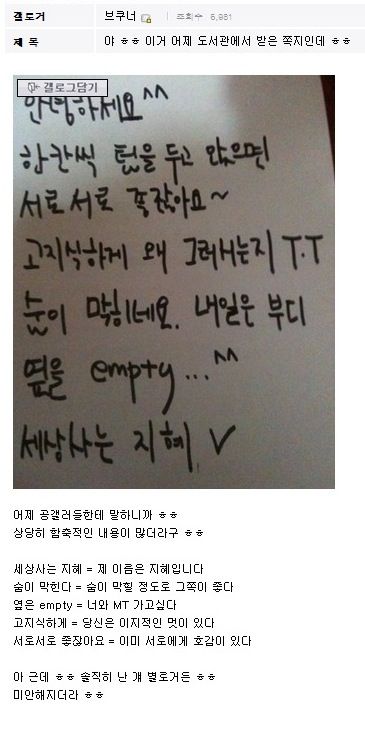 갤로거 브쿠너 조회수 6,981
제 목 야 ㅎㅎ 이거 어제 도서관에서 받은 쪽지인데 ㅎㅎ
갤로그담기
안녕하세요^^
한칸씩 텀을 두고 앉으면
서로서로 좋잖아요~
고지식하게 왜 그러시는지 T.T
숨이 막히네요. 내일은 부디
옆을 empty...^^
세상사는 지혜 V
어제 공갤러들한테 말하니까 ㅎㅎ
상당히 함축적인 내용이 많더라구 ㅎㅎ
세상사는 지혜 = 제 이름은 지혜입니다
숨이 막힌다 = 숨이 막힐 정도로 그쪽이 좋다
옆은 empty = 너와 MT 가고싶다
고지식하게 = 당신은 이지적인 멋이 있다
서로서로 좋잖아요 = 이미 서로에게 호감이 있다
아 근데 ㅎㅎ 솔직히 난 걔 별로거든 ㅎㅎ
미안해지더라 ㅎㅎ